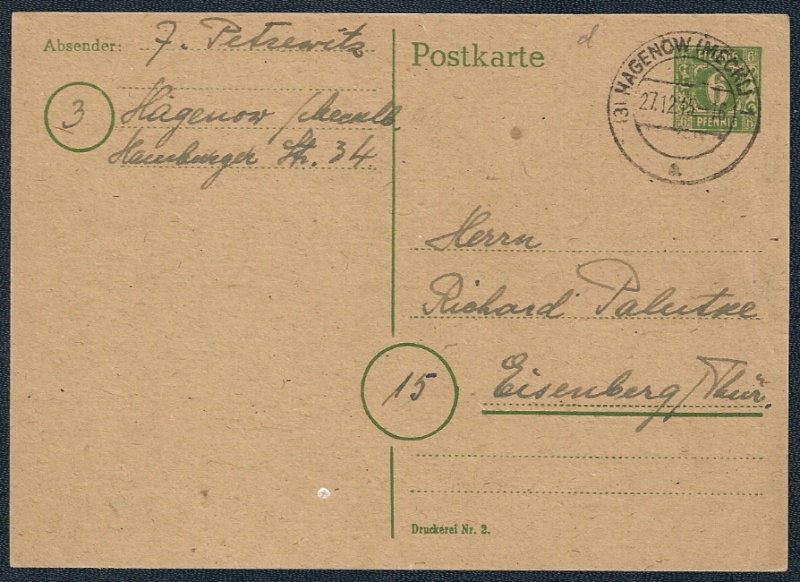 Absender: J. Petrewitz
3 Hagenow /Mecklb.
Hamburger Str. 34
Postkarte
d
(3) HAGENOW (MECKL) 1
27.12.45
a
6
PFENNIG
Herrn
Richard Palutke
15 Eisenberg/Thür.
Druckerei Nr. 2.